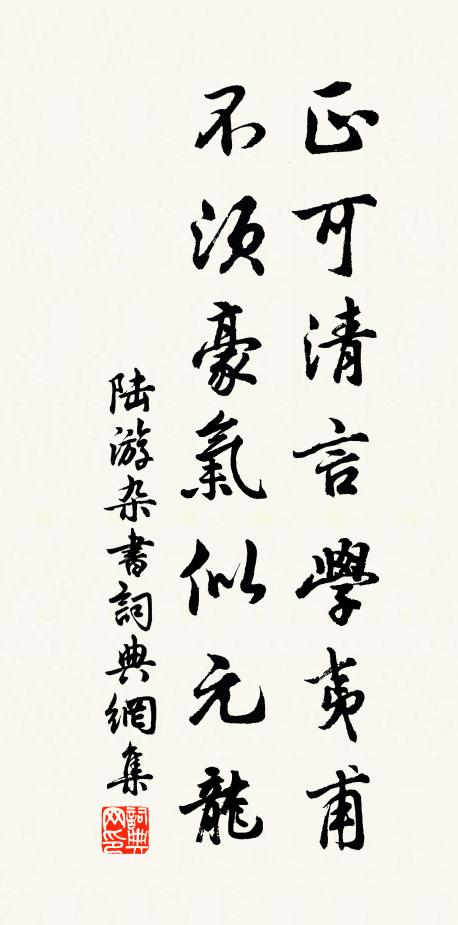 正可清言學夷甫
不須豪氣似元龍
陆游杂書詞典網集
詞典网印